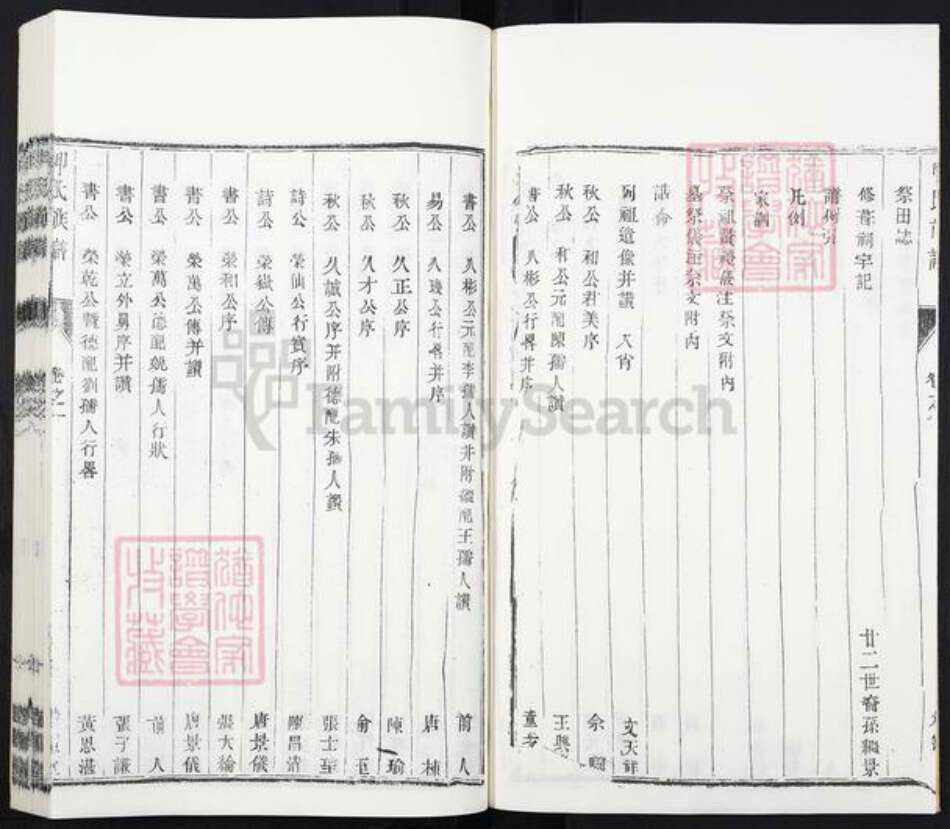 祭田誌
修葺祠宇記 廿二世裔孫 景
凡例
家訓
祭祖 禮儀注祭文附內
墓祭儀注祭文附內
誥命
列祖遺像并讚 文天祥
秋公 和公君美序
秋公 和公元配陳孺人讚 王
書公 久彬公行畧并序
書公 久彬公元配李孺人讚并附繼配王孺人讚 前人
易公 久 公行畧并序 唐棟
秋公 久正公序 陳瑜
秋公 久才公序
秋公 久誠公序并附德配朱孺人讚 張士
詩公 榮仙公行實序 陳昌清
詩公 榮嶽公傳 唐景儀
書公 榮和公序 張大綸
書公 榮萬公傳并讚 唐景儀
書公 榮萬公德配姚孺人行狀 前人
書公 榮立外舅序并讚 張子謙
書公 榮乾公暨德配劉孺人行畧 黃恩湛
氏族譜
卷之一
FamilySearch